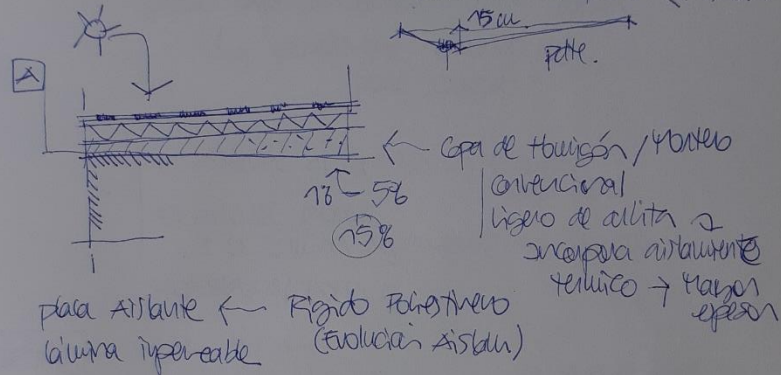 15 cm
pdte.
A
Capa de Hormigón / Mortero
convencional
ligero de arlita
incorpora aislamiento
térmico → Mayor
espesor
1% — 5%
15%
placa Aislante ← Rígido Poliestireno
lámina impermeable (Evolución Aislam)